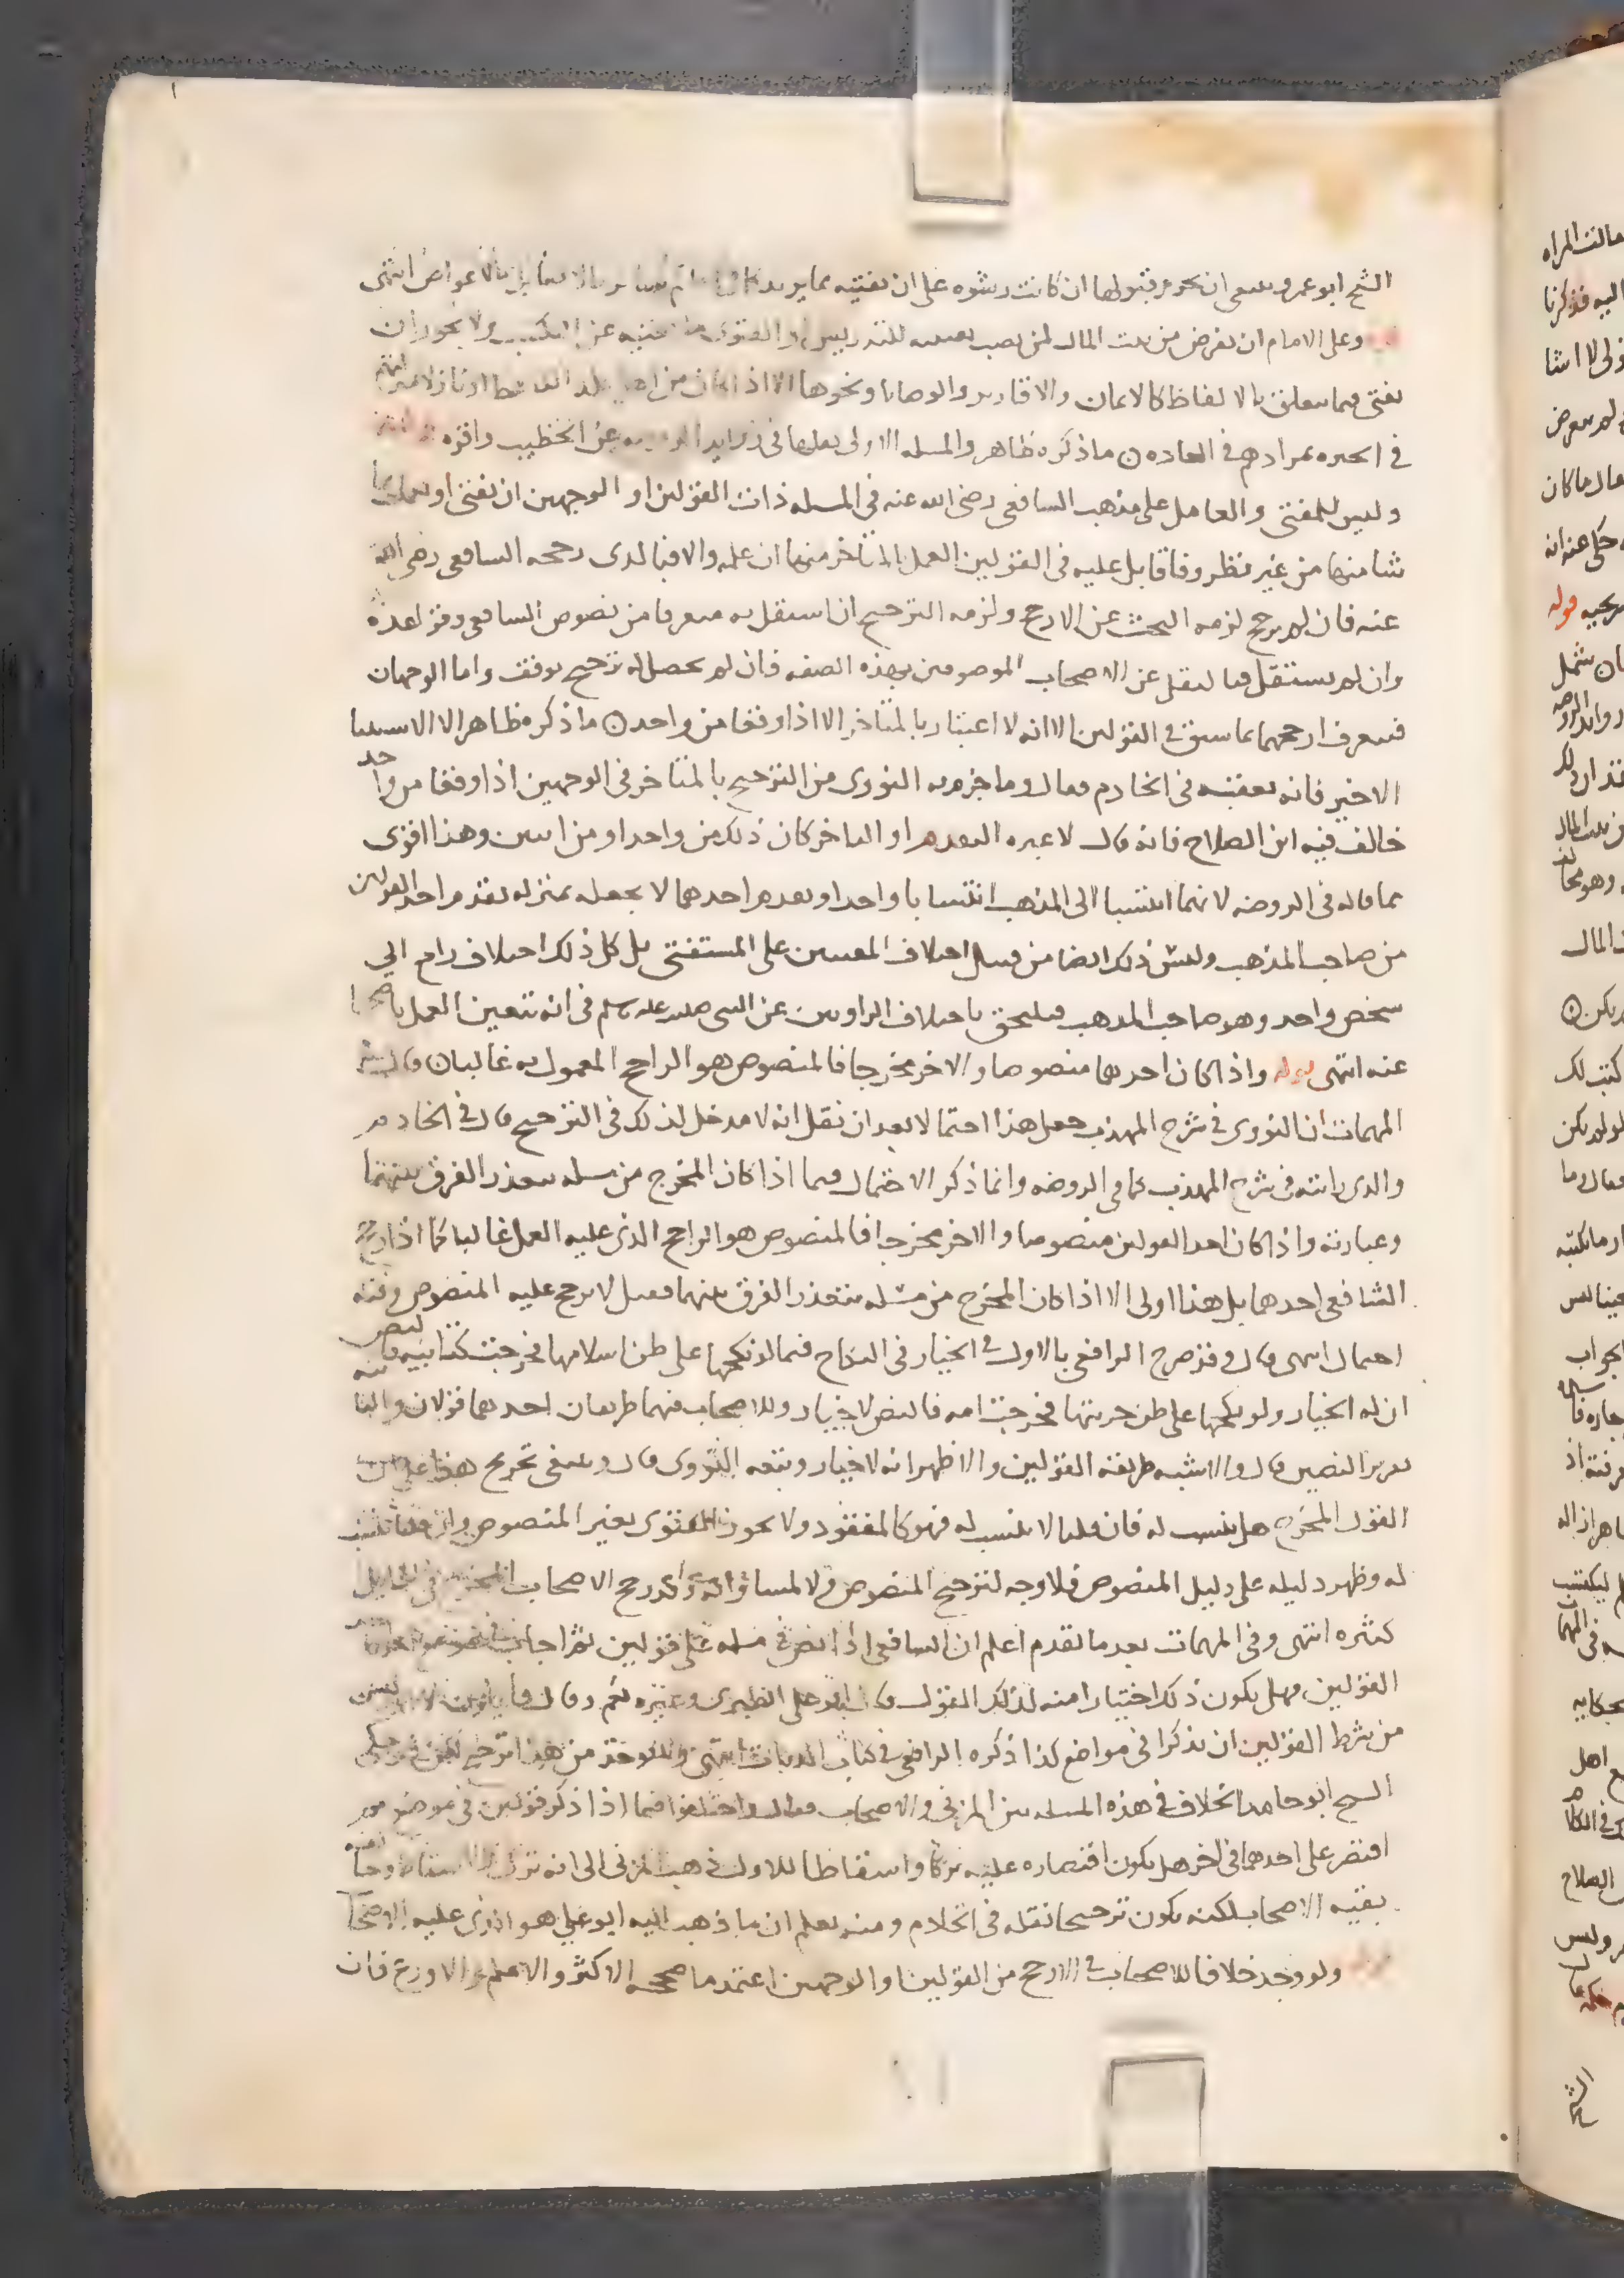 الشيخ ابو عمرو ينبغي ان يحرم قبولها ان كانت رشوه على ان يفتيه بما يريد كالحاكم بالاعواض انتهى
وعلى الامام ان يفرض من بيت المال لمن نصب نفسه للتدريس او الفتوى ما يغنيه عن التكسب ولا يجوز ان
يفتي فيما يتعلق بالالفاظ كالايمان والاقارير والوصايا ونحوها الا اذا كان من اهل بلد اللافظ او نازلا منزلتهم
في الخبره بمرادهم في العاده ن ما ذكره ظاهر والمسله الاولى نقلها في زوايد الروضه عن الخطيب واقره
وليس للمفتي والعامل على مذهب الشافعي رضى الله عنه في المسله ذات القولين او الوجهين ان يفتي او يعمل بما
شا منهما من غير نظر وفاقا بل عليه في القولين العمل بالمتاخر منهما ان علمه والا فبالذي رجحه الشافعي رضي الله
عنه فان لم يرجح لزمه البحث عن الارجح ولزمه الترجيح ان استقل به متعرفا من نصوص الشافعي وقواعده
وان لم يستقل فبالنقل عن الاصحاب الموصوفين بهذه الصفه فان لم يحصل له ترجيح توقف واما الوجهان
فيتعرف ارجحهما بما سبق في القولين الا انه لا اعتبار بالمتاخر الا اذا وقعا من واحد ن ما ذكره ظاهر الا الاستثنا
الاخير فانه تعقبه في الخادم فقال وما جزم به النووي من الترجيح بالمتاخر في الوجهين اذا وقعا من واحد
خالف فيه ابن الصلاح فانه قال لا عبره بالتقدم او التاخر كان ذلك من واحد او من اثنين وهذا اقوى
مما قاله في الروضه لانهما انتسبا الى المذهب انتسابا واحدا وتقدم احدهما لا يجعله بمنزله تقدم احد القولين
من صاحب المذهب وليس ذلك ايضا من قبيل اختلاف المفتيين على المستفتي بل كل ذلك اختلاف راجع الي
شخص واحد وهو صاحب المذهب فيلحق باختلاف الراويين عن النبي صلى الله عليه وسلم في انه يتعين العمل باصحها
عنه انتهى قوله واذا كان احدهما منصوصا والاخر مخرجا فالمنصوص هو الراجح المعمول به غالبا ن قال في
المهمات ان النووي في شرح المهذب جعل هذا احتمالا بعد ان نقل انه لا مدخل لذلك في الترجيح قال في الخادم
والذي رايته في شرح المهذب كما في الروضه وانما ذكر الاحتمال فيما اذا كان المخرج من مسله يتعذر الفرق بينهما
وعبارته واذا كان احد القولين منصوصا والاخر مخرجا فالمنصوص هو الراجح الذي عليه العمل غالبا كما اذا رجح
الشافعي احدهما بل هذا اولى الا اذا كان المخرج من مسله يتعذر الفرق بينهما فقيل لا يرجح عليه المنصوص وفيه
احتمال انتهى قال وقد صرح الرافعي بالاول في الخيار في النكاح فيما لو نكحها على ظن اسلامها فخرجت كتابيه فالنص
ان له الخيار ولو نكحها على ظن حريتها فخرجت امه فالنص لا خيار وللاصحاب فيهما طريقان احدهما قولان والثاني
تقرير النصين قال والاشبه طريقه القولين والاظهر انه لا خيار وتبعه النووي قال وينبغي تخريج هذا على ان
القول المخرج هل ينسب له فان قلنا لا ينسب له فهو كالمفقود ولا يجوز الفتوى بغير المنصوص وان قلنا ينسب
له وظهر دليله على دليل المنصوص فلا وجه لترجيح المنصوص ولا لمساواته وقد رجح الاصحاب المخرج في مسايل
كثيره انتهى وفي المهمات بعد ما تقدم اعلم ان الشافعي اذا نص في مسله على قولين ثم اجاب في موضع اخر باحد
القولين فهل يكون ذلك اختيارا منه لذلك القول قال ابو علي الطبري وغيره نعم وقال قايلون لا وليس
من شرط القولين ان يذكرا في مواضع كذا ذكره الرافعي في كتاب الديات انتهى ويوخذ من هذا ترجيح لكن في
الشيخ ابو حامد الخلاف في هذه المسله بين المزني والاصحاب فقال واختلفوا فيما اذا ذكر قولين في موضع ثم
اقتصر على احدهما في اخر هل يكون اقتصاره عليه تركا واسقاطا للاول فذهب المزني الى انه ترك واسقاط وخالفه
بقيه الاصحاب لكنه يكون ترجيحا نقله في الخادم ومنه يعلم ان ما ذهب اليه ابو علي هو الذي عليه الاصحاب
ولو وجد خلافا للاصحاب في الارجح من القولين او الوجهين اعتمد ما صححه الاكثر والاعلم والاورع فان